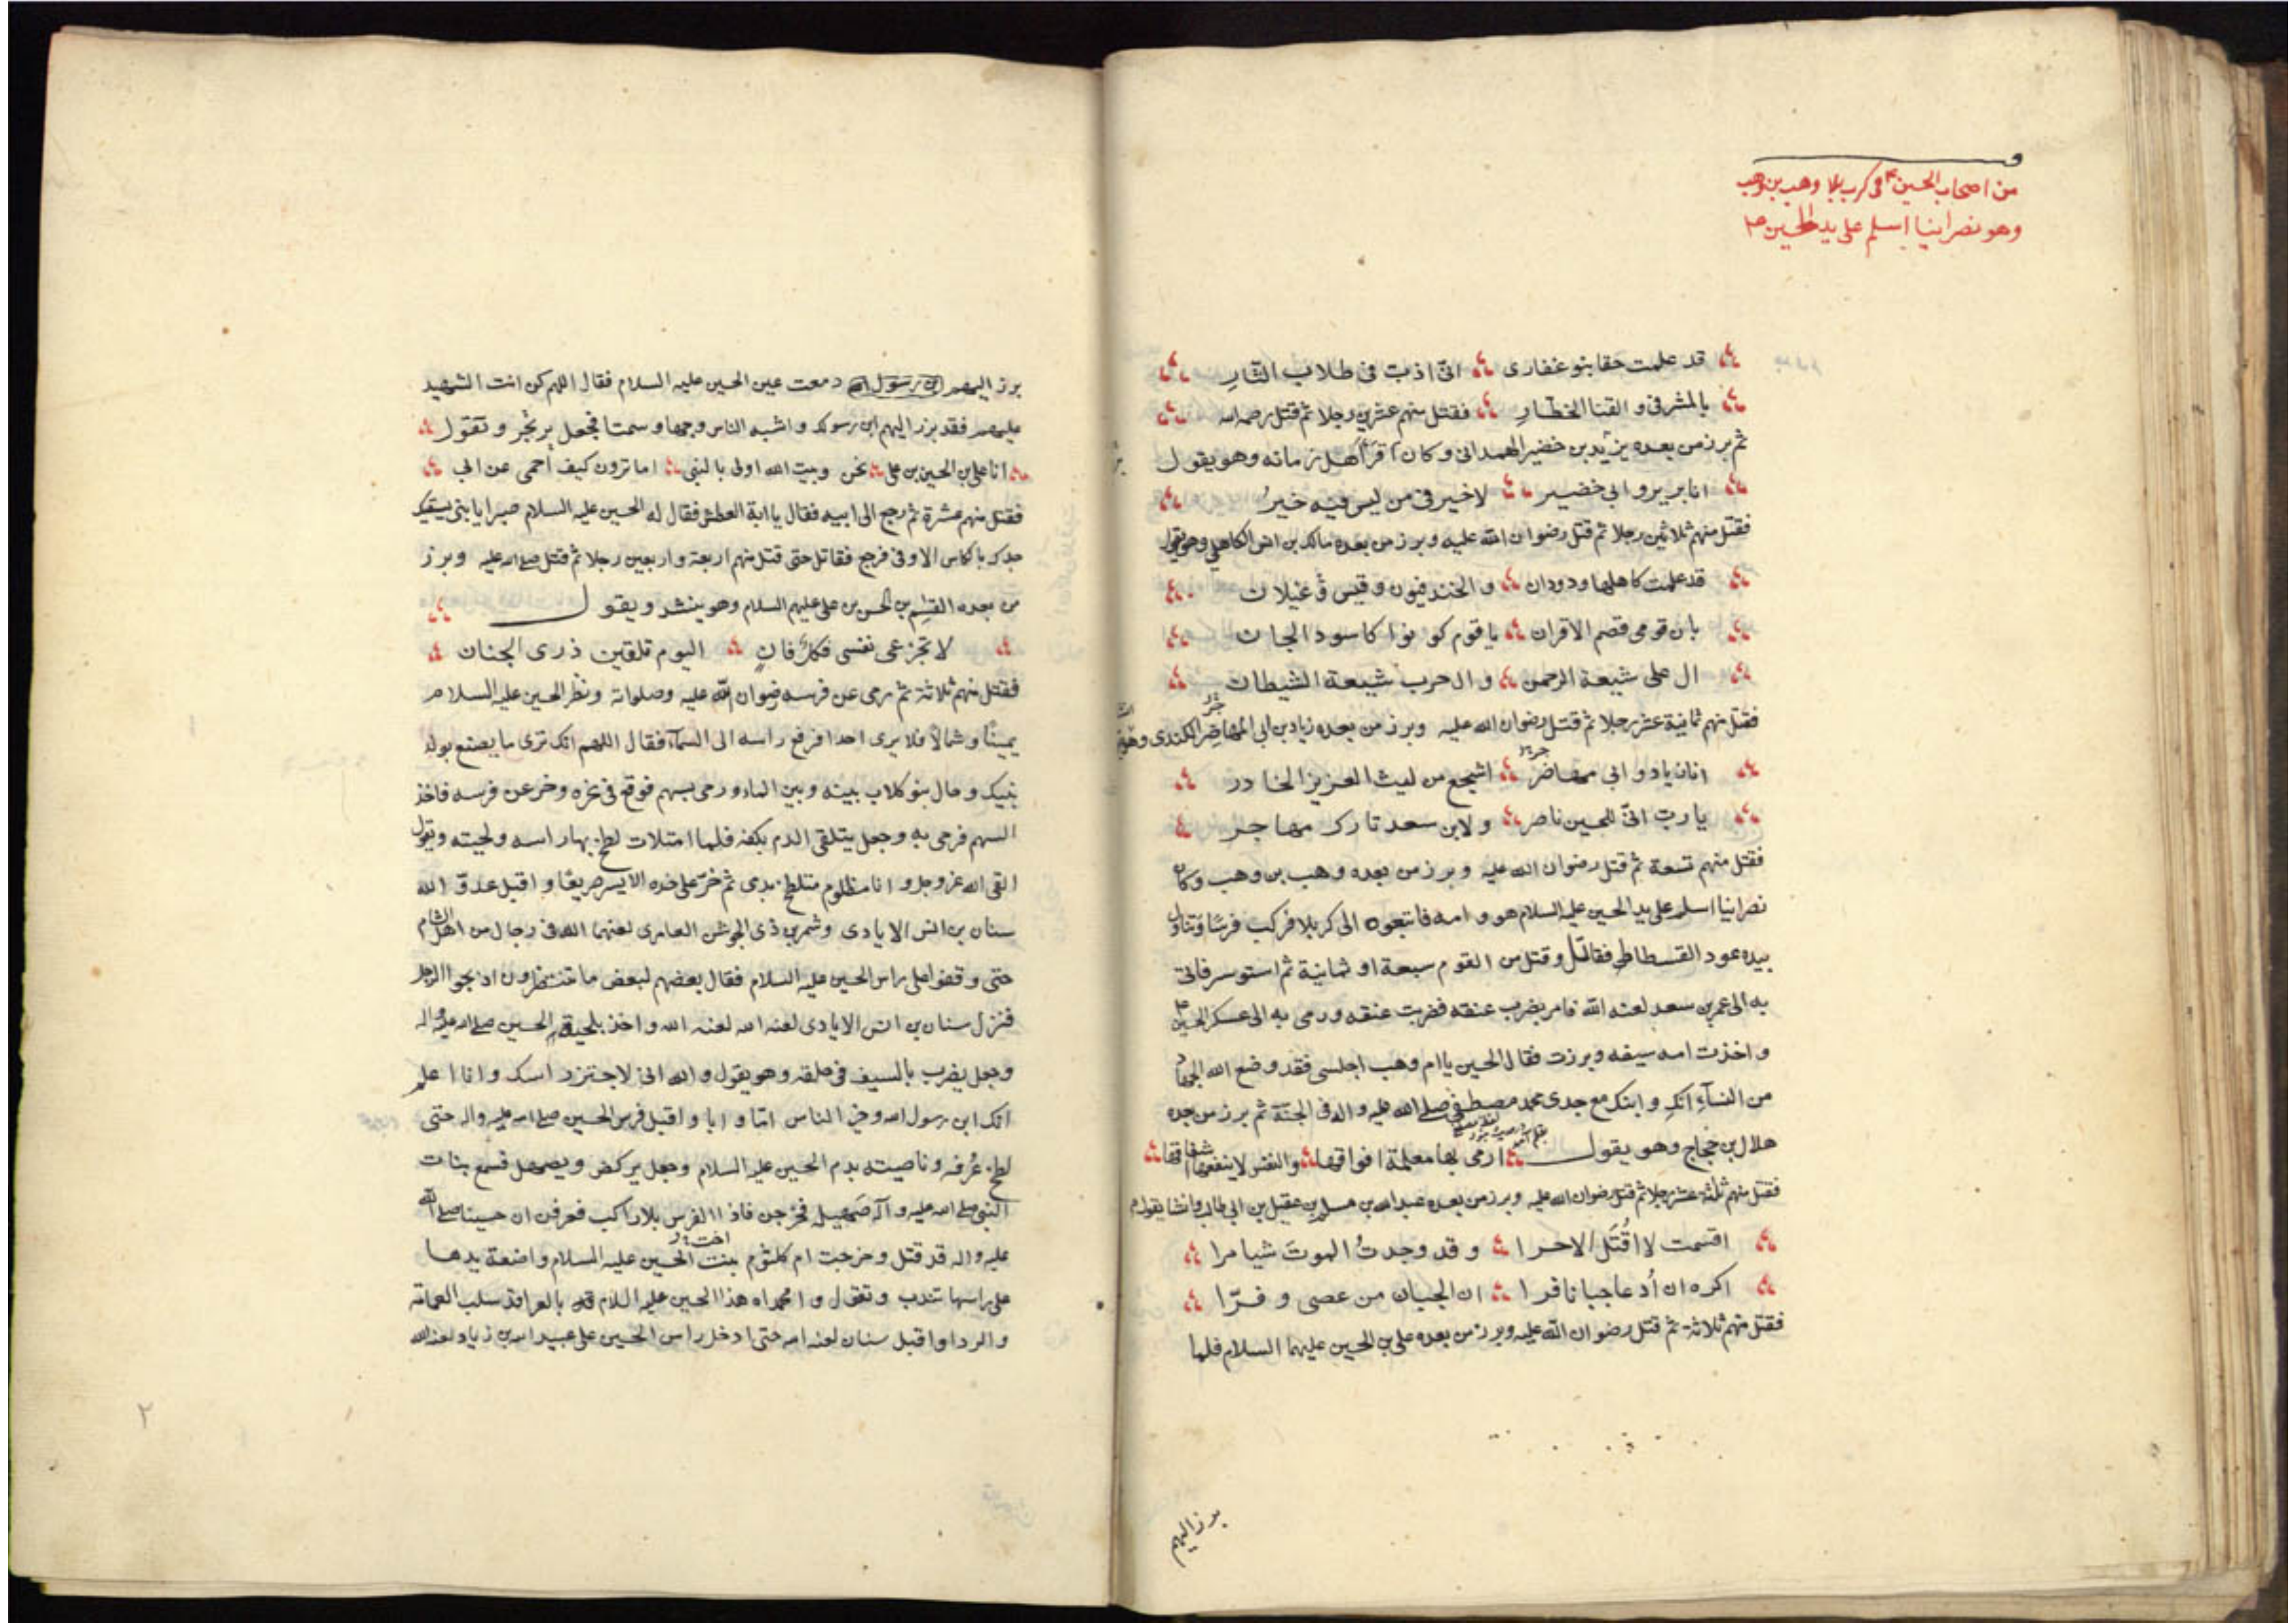 من اصحاب الحسين ع فى كربلا وهب بن وهب
وهو نصرانيا اسلم على يد الحسين ع
قد علمت حقا بنو غفارى انى اذب فى طلاب الثار
بالمشرفى و القنا الخطار فقتل منهم عشرين رجلا ثم قتل رحمه الله
ثم برز من بعده يزيد بن خضير الهمدانى و كان اقرأ اهل زمانه وهو يقول
انا برير و ابى خضير لا خير فى من ليس فيه خير
فقتل منهم ثلاثين رجلا ثم قتل رضوان الله عليه و برز من بعده مالك بن انس الكاهلى وهو يقول
قد علمت كاهلها ودودان و الخندفيون و قيس غيلان
بان قومى قصم الاقران يا قوم كونوا كاسود الجان
ال على شيعة الرحمن و ال حرب شيعة الشيطان
فقتل منهم ثمانية عشر رجلا ثم قتل رضوان الله عليه و برز من بعده زياد بن ابى المهاضر الكندى
انا زياد و ابى مهاضر اشجع من ليث العزيز الخادر
يا رب انى للحسين ناصر و لابن سعد تارك مهاجر
فقتل منهم تسعة ثم قتل رضوان الله عليه و برز من بعده وهب بن وهب وكان
نصرانيا اسلم على يد الحسين عليه السلام هو و امه فاتبعوه الى كربلا فركب فرسا وتناول
بيده عود القسطاط فقاتل و قتل من القوم سبعة او ثمانية ثم استوسر فاتى
به الى عمر بن سعد لعنه الله فامر بضرب عنقه فضربت عنقه و رمى به الى عسكر الحسين ع
و اخذت امه سيفه وبرزت فقال الحسين يا ام وهب اجلسى فقد وضع الله الجهاد
من النسآء انك و ابنك مع جدى محمد مصطفى صلى الله عليه و اله فى الجنة ثم برز من بعده
هلال بن حجاج وهو يقول ارمى بها معلمة افواقها و النفس لا ينفعها اشفاقها
فقتل منهم ثلثة عشر رجلا ثم قتل رضوان الله عليه و برز من بعده عبد الله بن مسلم بن عقيل بن ابى طالب وانشا يقول
اقسمت لا اُقتَل الا حرا و قد وجدتُ الموتَ شيا مرا
اكره ان اُدعا جبانا فرا ان الجبان من عصى و فرّا
فقتل منهم ثلاثة ثم قتل رضوان الله عليه و برز من بعده على بن الحسين عليهما السلام فلما
برز اليهم
برز اليهم دمعت عين الحسين عليه السلام فقال اللهم كن انت الشهيد
عليهم فقد برز اليهم ابن رسولك و اشبه الناس وجها و سمتا فجعل يرتجز و تقول
انا على بن الحسين بن على نحن و بيت الله اولى بالنبى اما ترون كيف احمى عن ابى
فقتل منهم عشرة ثم رجع الى ابيه فقال يا ابة العطش فقال له الحسين عليه السلام صبرا يا بنى يسقيك
جدك بالكاس الاوفى فرجع فقاتل حتى قتل منهم اربعة و اربعين رجلا ثم قتل صلى الله عليه و برز
من بعده القسم بن الحسن بن على عليهم السلام وهو ينشد و يقول
لا تجزعى نفسى فكل فانٍ اليوم تلقين ذرى الجنان
فقتل منهم ثلاثة ثم رمى عن فرسه رضوان الله عليه و صلواته و نظر الحسين عليه السلام
يمينا و شمالا فلا يرى احدا فرفع راسه الى السمآء فقال اللهم انك ترى ما يصنع بولد
نبيك و حال بنو كلاب بينه و بين الماء و رمى بسهم فوقع فى نحره و خر عن فرسه فاخذ
السهم فرمى به و جعل يتلقى الدم بكفه فلما امتلات لطخ بها راسه و لحيته و يقول
القى الله عز و جل و انا مظلوم متلطخ بدمى ثم خر على خده الايسر صريعا و اقبل عدو الله
سنان بن انس الايادى و شمر بن ذى الجوشن العامرى لعنهما الله فى رجال من اهل الشام
حتى وقفوا على راس الحسين عليه السلام فقال بعضهم لبعض ما تنتظرون اذبحوا الرجل
فنزل سنان بن انس الايادى لعنه الله لعنه الله و اخذ بلحية الحسين صلى الله عليه واله
و جعل يضرب بالسيف فى حلقه وهو يقول و الله انى لاجتز راسك و انا اعلم
انك ابن رسول الله و خير الناس امّا و ابا و اقبل فرس الحسين صلى الله عليه واله حتى
لطخ عُرفه و ناصيته بدم الحسين عليه السلام و جعل يركض و يصهل فسمع بنات
النبى صلى الله عليه و آله صهيله فخرجن فاذا الفرس بلا راكب فعرفن ان حسينا صلى الله
عليه و اله قد قتل و خرجت ام كلثوم بنت الحسين عليه السلام واضعة يدها
على راسها تندب و تقول وا محمداه هذا الحسين عليه السلام قد بالعرا قد سلب العمامة
و الردا و اقبل سنان لعنه الله حتى ادخل راس الحسين على عبيد الله بن زياد لعنه الله
٢